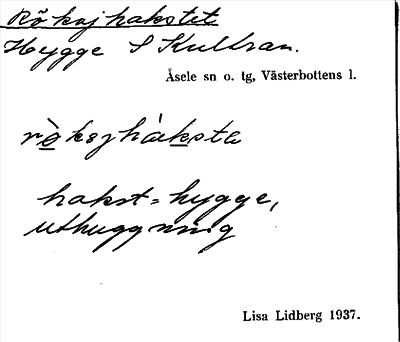 Rökojhakstet
Hygge S Kultran.
Åsele sn o. tg, Västerbottens l.
rò̱ksjhàḵsta
hakst = hygge,
uthuggning
Lisa Lidberg 1937.